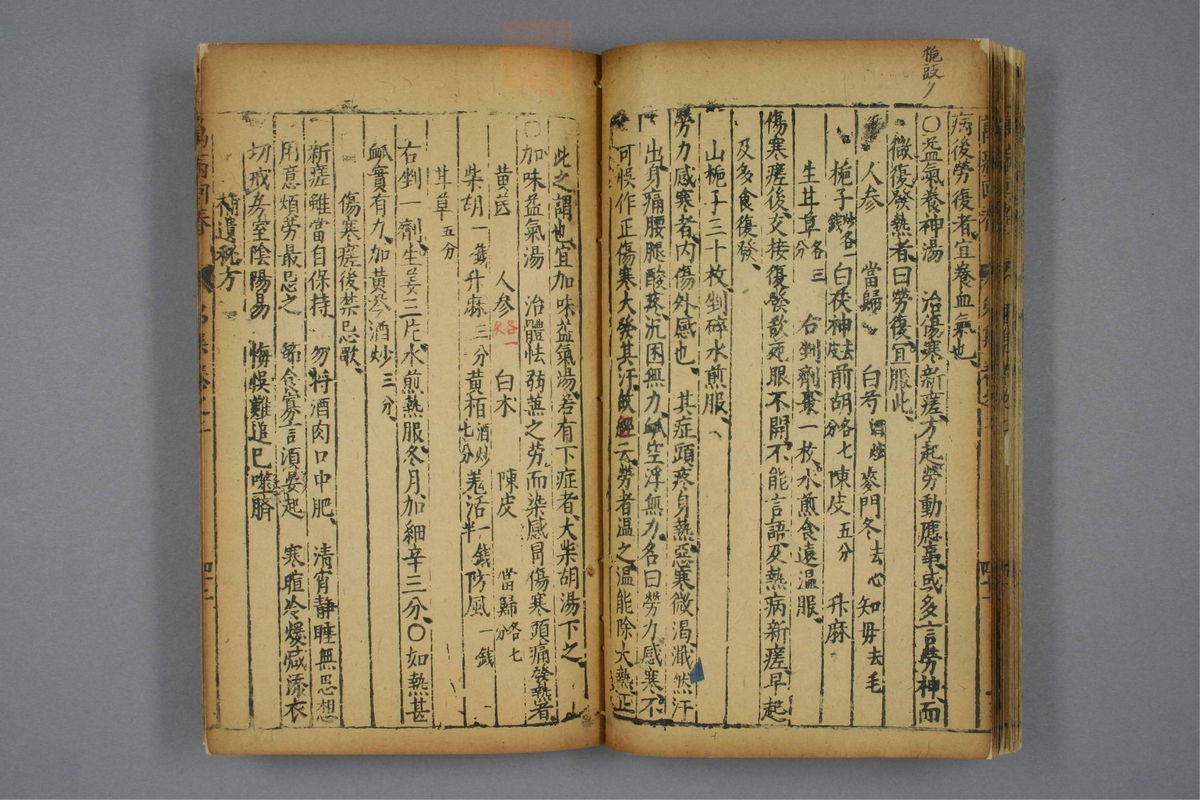 梔豉り
病後勞復者宜養血氣也
○益氣養神湯 治傷寒新瘥方起勞動應事或多言勞神而
微復發熱者曰勞復宜服此
人參 當歸 白芍酒炒 麥門冬去心 知毋去毛
梔子炒各一錢 白茯神去皮 前胡各七分 陳皮五分 升麻
生甘草各三分 右剉劑棗一枚水煎食遠溫服
傷寒瘥後交接復發欲死眼不開不能言語及熱病新瘥早起
及多食復發
山梔子三十枚剉碎水煎服
勞力感寒者内傷外感也 其症頭疼身熱惡寒微渴濈然汗
出身痛腰腿酸疼沉困無力脉空浮無力名曰勞力感寒不
可悮作正傷寒大發其汗故經云勞者温之温能除大熱正
此之謂也宜加味益氣湯若有下症者大柴胡湯下之
○加味益氣湯 治體怯弱蒸之勞而染感冒傷寒頭痛發熱者
黄芪 人參各一錢 白术 陳皮 當歸各七分
柴胡一錢 升麻三分 黄栢酒炒七分 羗活一錢半 防風一錢
甘草五分
右剉一劑生姜三片水煎熱服冬月加細辛三分○如熱甚
脉實有力加黄芩酒炒三分
傷寒瘥後禁忌歌
新瘥雖當自保持 勿將酒肉口中肥 清宵静睡無思想
用意煩勞最忌之 節食寡言須晏起 寒暄冷煖減添衣
切戒房室陰陽易 悔悮難追已噬臍
補遺秘方
萬病回春
四十二